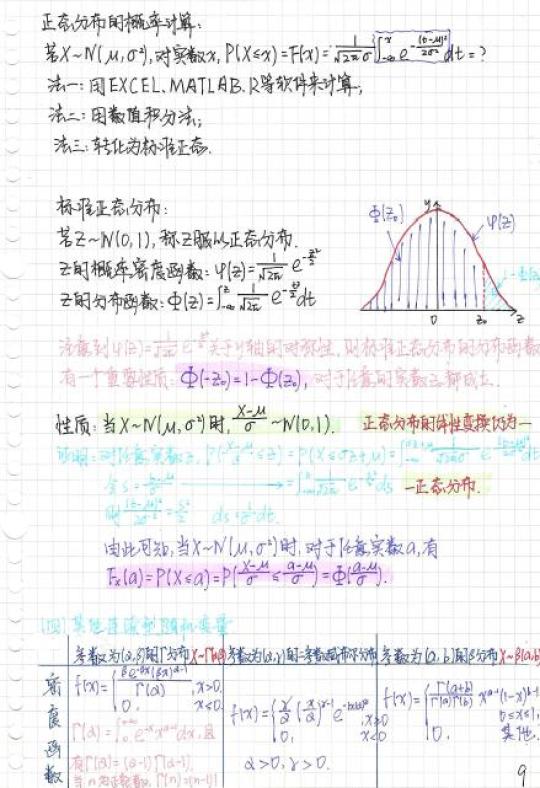 正态分布的概率计算:
若X~N(μ,σ²),对实数x, P(X≤x)=F(x)=∫_{-∞}^{x} \frac{1}{\sqrt{2π}σ} e^{-\frac{(t-μ)²}{2σ²}}dt=?
法一:用EXCEL、MATLAB、R等软件来计算;
法二:用数值积分法;
法三:转化为标准正态.
标准正态分布:
若Z~N(0,1),称Z服从正态分布.
Z的概率密度函数:φ(z)=\frac{1}{\sqrt{2π}} e^{-\frac{z²}{2}}
Z的分布函数:Φ(z)=∫_{-∞}^{z} \frac{1}{\sqrt{2π}} e^{-\frac{t²}{2}}dt
y
Φ(z₀)
φ(z)
0
z₀
z
注意到φ(z)= 关于y轴的对称性,则标准正态分布的分布函数
有一个重要性质:Φ(-z₀)=1-Φ(z₀),对于任意的实数z₀都成立.
性质:当X~N(μ,σ²)时,\frac{X-μ}{σ}~N(0,1).
正态分布的线性变换仍为一
证明:对任意实数z, P(\frac{X-μ}{σ}≤z)=P(X≤σz+μ)=
一正态分布.
由此可知,当X~N(μ,σ²)时,对于任意实数a,有
F_X(a)=P(X≤a)=P(\frac{X-μ}{σ}≤\frac{a-μ}{σ})=Φ(\frac{a-μ}{σ}).
(四)其他连续型随机变量
参数为(α,β)的Γ分布 X~Γ(α,β)
参数为(α,γ)的二参数威布尔分布
参数为(a,b)的β分布 X~β(a,b)
密度函数
f(x)={ \frac{βe^{-βx}(βx)^{α-1}}{Γ(α)}, x>0
0, x≤0
Γ(α)=∫_0^{+∞} e^{-x}x^{α-1}dx,且
有Γ(α)=(α-1)Γ(α-1),
当n为正整数, Γ(n)=(n-1)!
0, x≤0
α>0,γ>0.
f(x)={ \frac{Γ(a+b)}{Γ(a)Γ(b)} x^{a-1}(1-x)^{b-1}
0≤x≤1,
0, 其他.
9